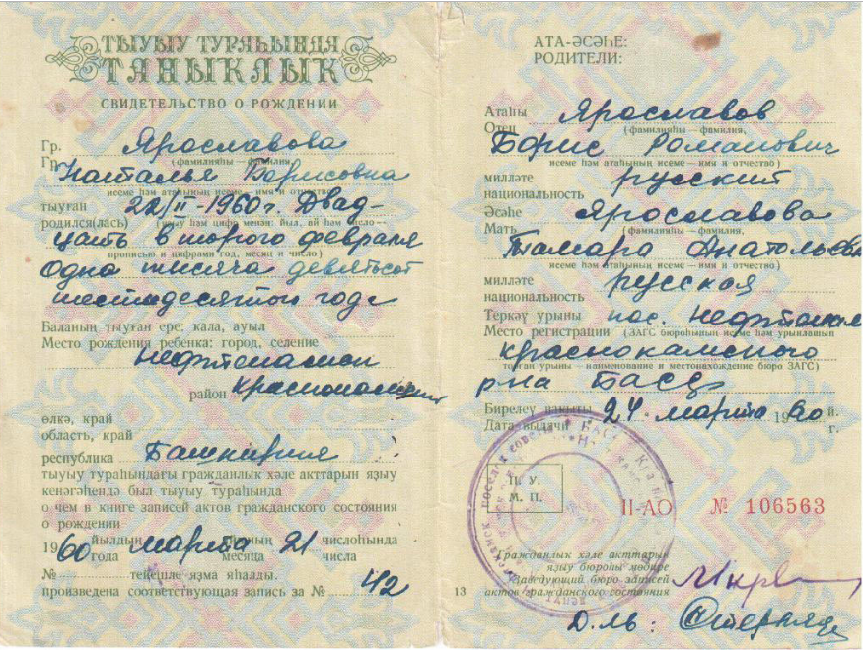 ТЫУЫУ ТУРАҺЫНДА
ТАНЫҠЛЫҠ
СВИДЕТЕЛЬСТВО О РОЖДЕНИИ
Гр. Ярославова
Гр. (фамилияһы — фамилия,
Наталья Борисовна
исеме һәм атаһының исеме — имя и отчество)
тыуған 22/II-1960 г. Двад-
родился(лась) (тыуыу һәм цифр менән: йыл, ай һәм число —
цать второго февраля
прописью и цифрами год, месяц и число)
Одна тысяча девятьсот
шестидесятого года
Баланың тыуған ере: ҡала, ауыл
Место рождения ребенка: город, селение
район
өлкә, край
область, край
республика Башкирия
тыуыу тураһындағы граждандыҡ хәле акттарын яҙыу
кенәгәһендә был тыуыу тураһында
о чем в книге записей актов гражданского состояния
о рождении
1960 йылдың года марта айының месяца 21 числоһында числа
№ тейешле яҙма яһалды.
произведена соответствующая запись за № 42
АТА-ӘСӘҺЕ:
РОДИТЕЛИ:
Атаһы Ярославов
Отец (фамилияһы — фамилия,
Борис Романович
исеме һәм атаһының исеме — имя и отчество)
милләте русский
национальность
Әсәһе Ярославова
Мать (фамилияһы — фамилия,
Тамара Анатольевна
исеме һәм атаһының исеме — имя и отчество)
милләте русская
национальность
Теркәү урыны пос.
Место регистрации (ЗАГС бюроһының исеме һәм урынлашҡан
Краснокамского
торған урыны — наименование и местонахождение бюро ЗАГС)
р-на БАССР
Биреләү ваҡыты 24 марта 1960 й.
Дата выдачи г.
П. У.
М. П.
II-АО № 106563
Граждандыҡ хәле акттарын
яҙыу бюроһы мөдире
Заведующий бюро записей
13 актов гражданского состояния
Д-ль: